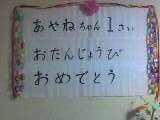 あやねちゃん1さい
おたんじょうび
おめでとう